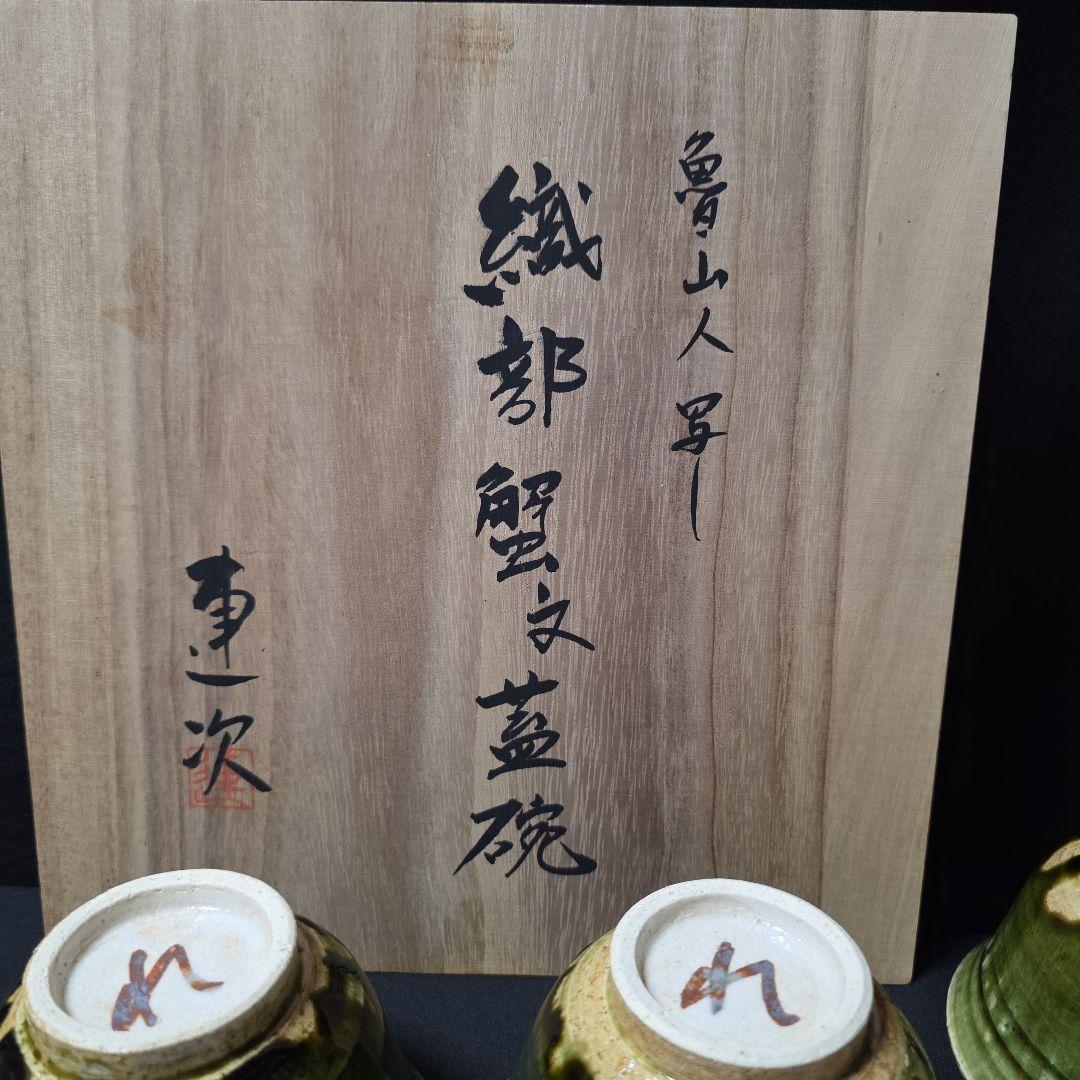 魯山人写し
織部蟹文蓋碗
連次
れ
れ